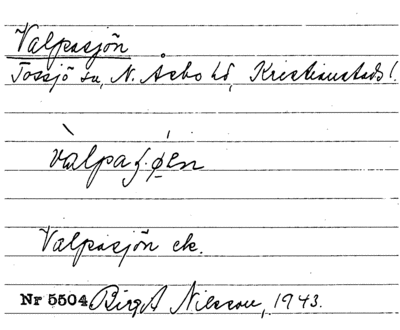 Valpasjön
Tossjö sn, N. Åsbo hd, Kristianstads l.
vàlpaʃ.ǿen
Valpasjön ek.
Nr 5504 Birgit Nilsson, 1943.